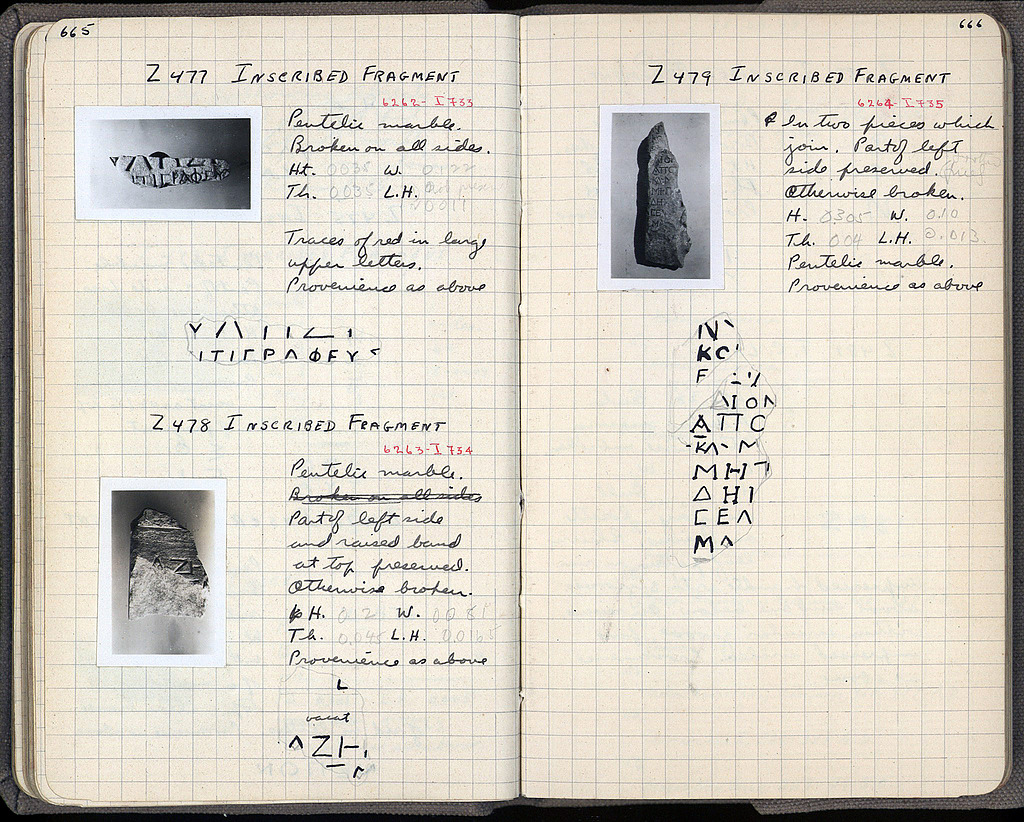 665
Z 477 INSCRIBED FRAGMENT
6262-I 733
Pentelic marble.
Broken on all sides.
Ht. 0.035 W. 0.122
Th. 0.035 L.H.
Traces of red in large
upper letters.
Provenience as above
ΙΤΙΓΡΑΦΕΥ
Z 478 INSCRIBED FRAGMENT
6263-I 734
Pentelic marble.
Broken on all sides
Part of left side
and raised band
at top preserved.
Otherwise broken.
H. 0.12 W.
Th. 0.045 L.H. 0.0165
Provenience as above
L
vacat
ΛΖΗ
666
Z 479 INSCRIBED FRAGMENT
6264-I 735
In two pieces which
join. Part of left
side preserved.
Otherwise broken.
H. 0.305 W. 0.10
Th. 0.04 L.H. 0.013
Pentelic marble.
Provenience as above
ΚΟ
ΛΙΟΛ
ΑΠΟ
ΜΗ
ΔΗΙ
ΕΛ
ΜΛ